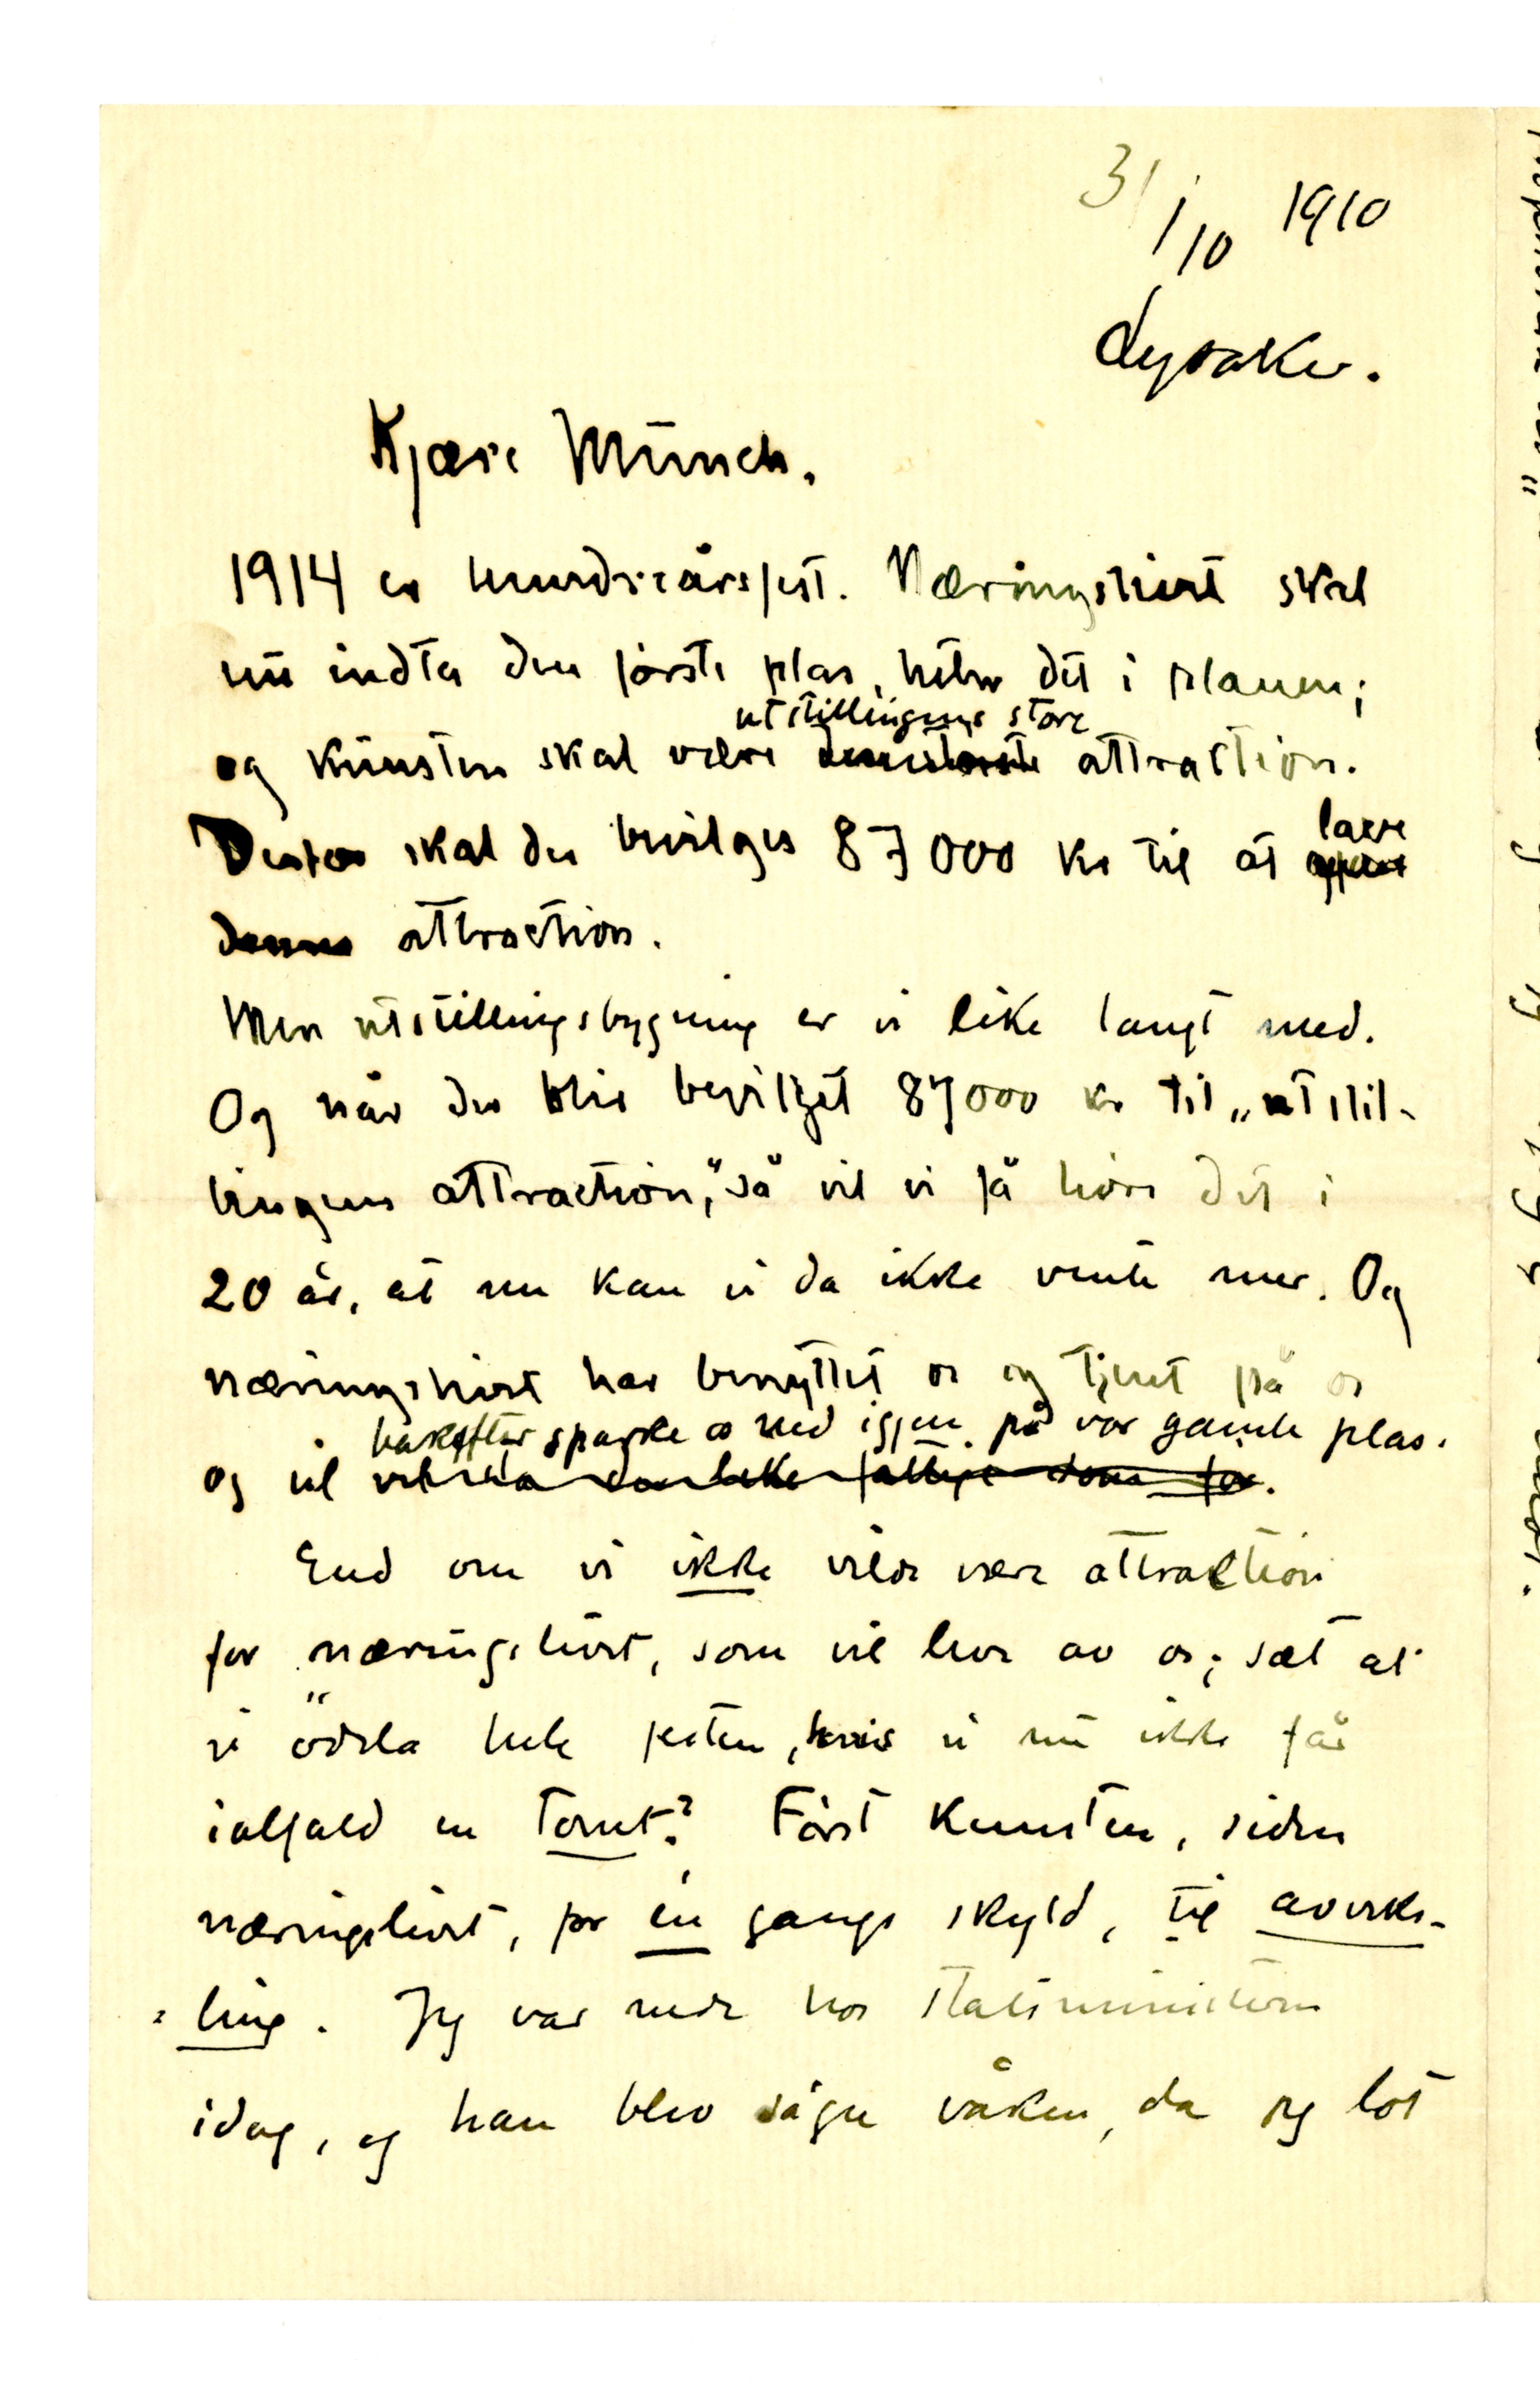 31/10 1910
Lysaker.
Kjære Münch.
1914 er hundreårsfest. Næringslivet skal
nu indta den første plas, heter det i planen;
og kunsten skal være utstillingens store attraction.
Derfor skal der bevilges 87000 kr til at lave
denne attraction.
Men utstillingsbygning er vi like langt med.
Og når der blir bevilget 87000 kr til „utstil-
lingens attraction," så vil vi få høre det i
20 år, at nu kan vi da ikke vente mer. Og
næringslivet har benyttet os og tjent på os
og vil bakefter sparke os ned igjen på vor gamle plas.
End om vi ikke vilde være attraction
for næringslivet, som vil leve av os; sæt at
vi ødela hele festen, hvis vi nu ikke får
ialfald en tomt? Først kunsten, siden
næringslivet, for én gangs skyld, til aveks-
ling. Jeg var nede hos statsministeren
idag, og han blev så gu våken, da jeg lot